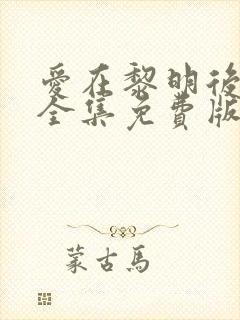 愛在黎明後
全集免費版
蒙古馬